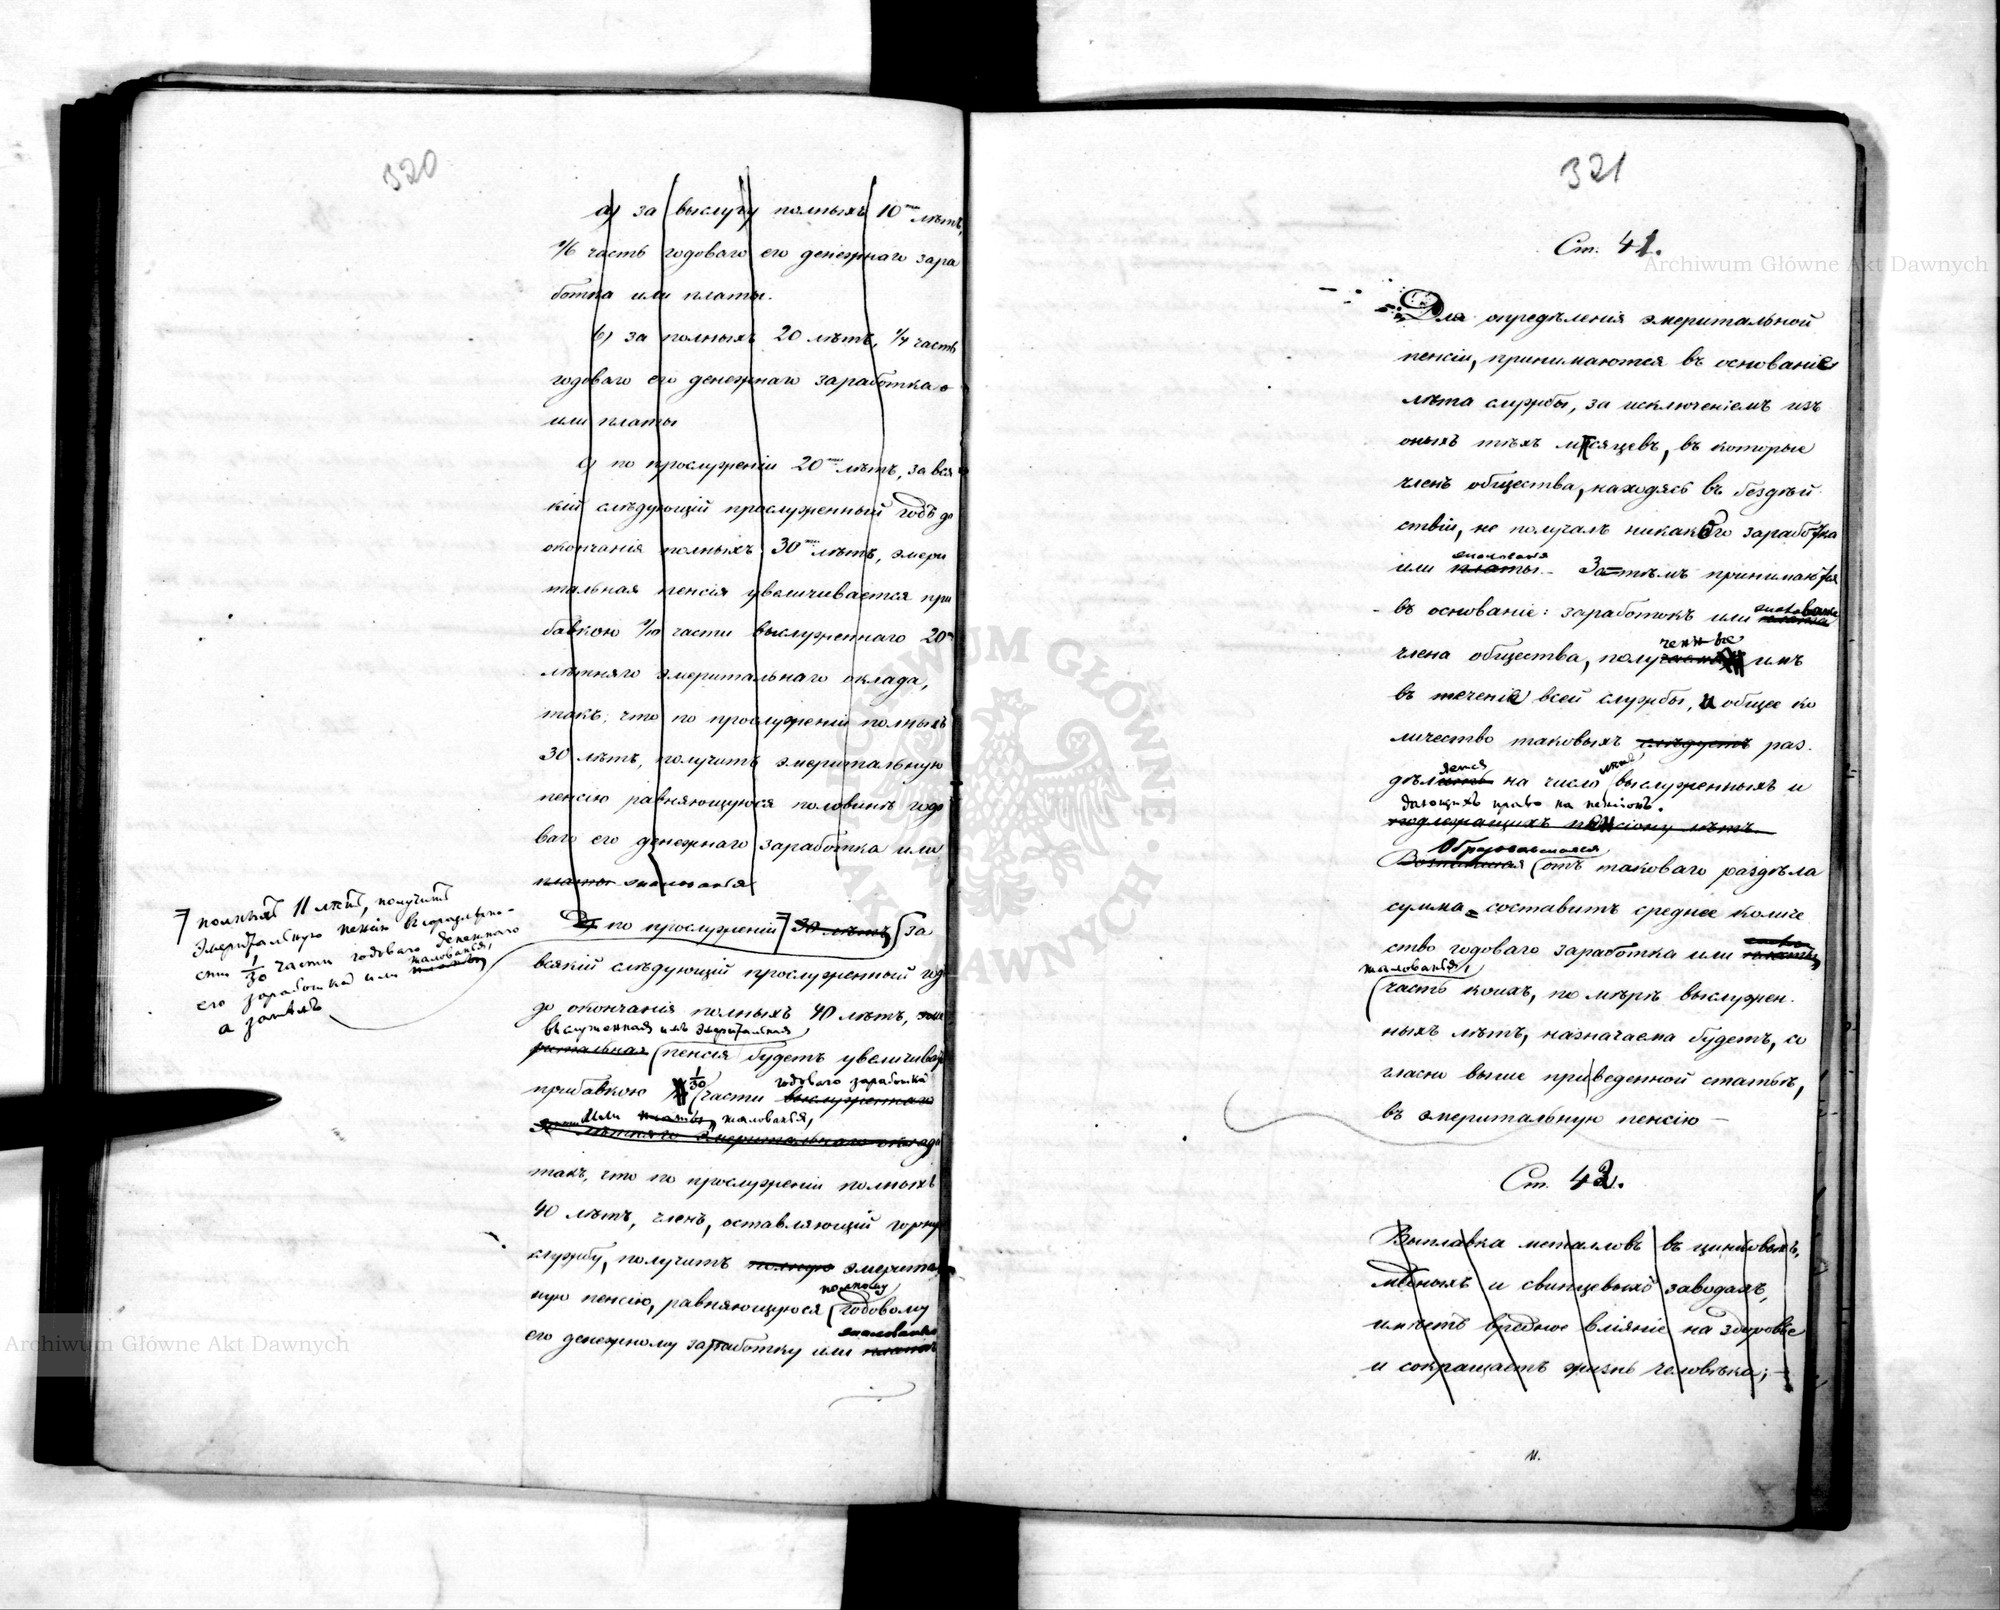 320
а) за выслугу полныхъ 10 ти лѣтъ,
1/6 часть годоваго его денежнаго зара
ботка или платы.
b) за полныхъ 20 лѣтъ, 1/4 часть
годоваго его денежнаго заработка
или платы
c) по прослуженіи 20 ти лѣтъ, за вся
кій слѣдующій прослуженный годъ до
окончанія полныхъ 30 ти лѣтъ, эмери
тальная пенсія увеличивается при
бавкою 1/10 части выслуженнаго 20
лѣтняго эмеритальнаго оклада,
такъ, что по прослуженіи полныхъ
30 лѣтъ, получитъ эмеритальную
пенсію равняющуюся половинѣ годо
ваго его денежнаго заработка или
платы жалованья
полныхъ 11 лѣтъ, получитъ
эмеритальную пенсію въ
1/30 части годоваго денежнаго
его заработка или жалованья, платы
а затѣмъ
по прослуженіи 30 лѣтъ за
всякій слѣдующій прослуженный годъ
до окончанія полныхъ 40 лѣтъ, эме
выслуженная имъ эмеритальная
ритальная пенсія будетъ увеличивай
годоваго заработка
прибавкою 1/30 части выслуженнаго
или платы жалованья,
лѣтняго эмеритальнаго оклада
такъ, что по прослуженіи полныхъ
40 лѣтъ, членъ, оставляющій горную
службу, получитъ полную эмеритал
полному
ную пенсію, равняющуюся годовому
жалованью
его денежному заработку или платѣ
321
Ст. 41.
Для опредѣленія эмеритальной
пенсіи, принимаются въ основаніе
лѣта службы, за исключеніемъ изъ
оныхъ тѣхъ мѣсяцевъ, въ которые
членъ общества, находясь въ бездѣй
ствіи, не получалъ никакого заработка
жалованья
или платы. Затѣмъ принимается
жалованье
въ основаніе: заработокъ или плата
ченные
члена общества, получаемая имъ
въ теченіе всей службы, и общее ко
личество таковыхъ слѣдуетъ раз
яется лѣтъ
дѣлить на число выслуженныхъ и
дающихъ право на пенсіонъ.
подлежащихъ пенсіону лѣтъ.
Образовавшаяся
отъ таковаго раздѣла
сумма составитъ среднее количе
ство годоваго заработка или платы
жалованья,
часть коихъ, по мѣрѣ выслужен
ныхъ лѣтъ, назначаема будетъ, со
гласно выше приведенной статьѣ,
въ эмеритальную пенсію
Ст. 42.
Выплавка металловъ въ цинковыхъ,
мѣдныхъ и свинцевыхъ заводахъ,
имѣетъ вредное вліяніе на здоровье
и сокращаетъ жизнь человѣка;
11.
Archiwum Główne Akt Dawnych
ARCHIWUM GŁÓWNE AKT DAWNYCH
Archiwum Główne Akt Dawnych